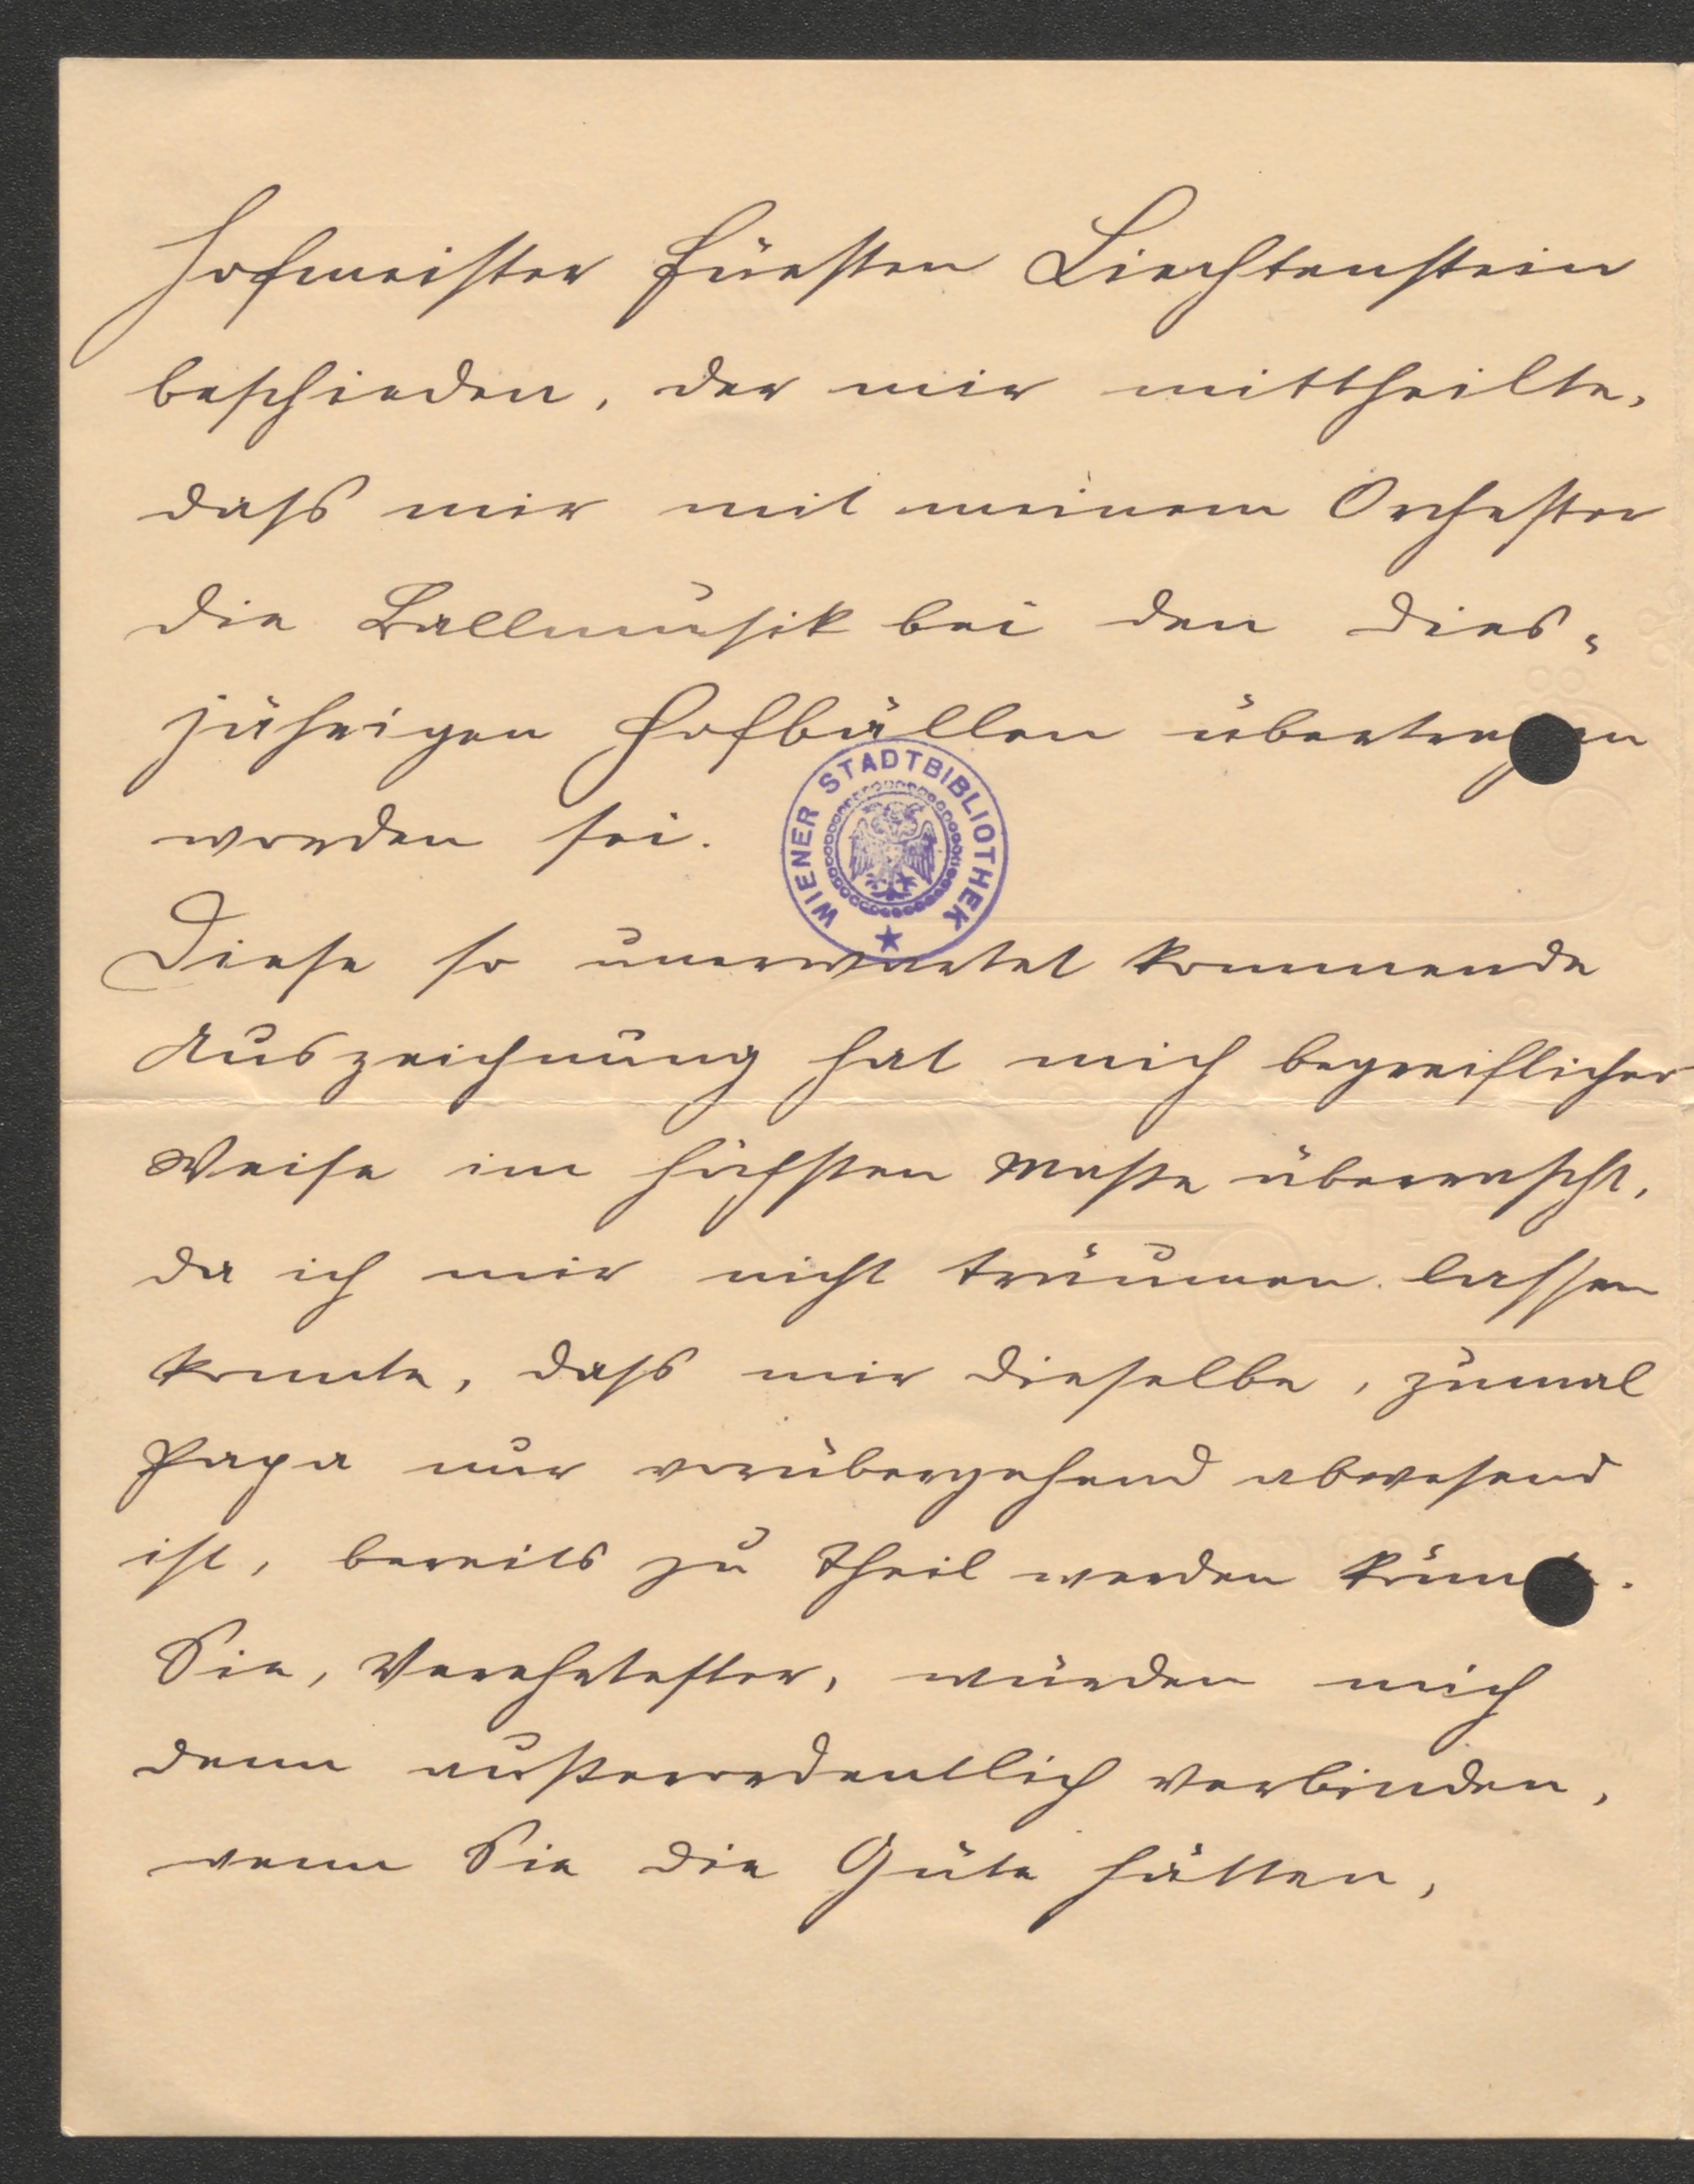 Hofmeister Fürsten Liechtenstein
beschieden, der mir mittheilte,
daß mir mit meinem Orchester
die Ballmusik bei den dies-
jährigen Hofbällen übertragen
worden sei.
WIENER STADTBIBLIOTHEK
Diese so unerwartet kommende
Auszeichnung hat mich begreiflicher
Weise im höchsten Maße überrascht,
da ich mir nicht träumen lassen
konnte, daß mir dieselbe, zumal
Papa nur vorübergehend abwesend
ist, bereits zu Theil werden könnte.
Sie, Verehrtester, würden mich
denn außerordentlich verbinden,
wenn Sie die Güte hätten,